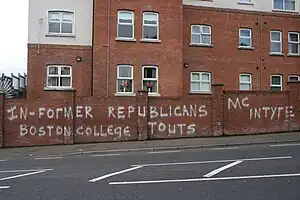 IN-FORMER REPUBLICANS
BOSTON COLLEGE TOUTS
MC
INTYRE